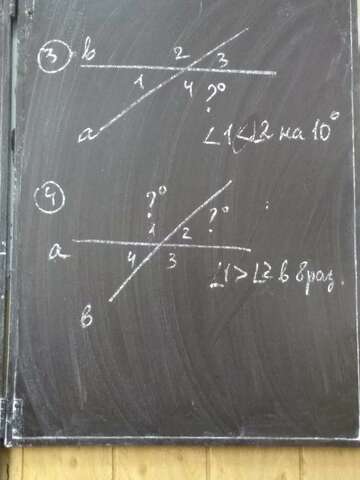 3 b 2 3
1 4 ?°
a ∠1<∠2 на 10°
4 ?° ?°
1 2
a 4 3 ∠1>∠2 в 8 раз.
в